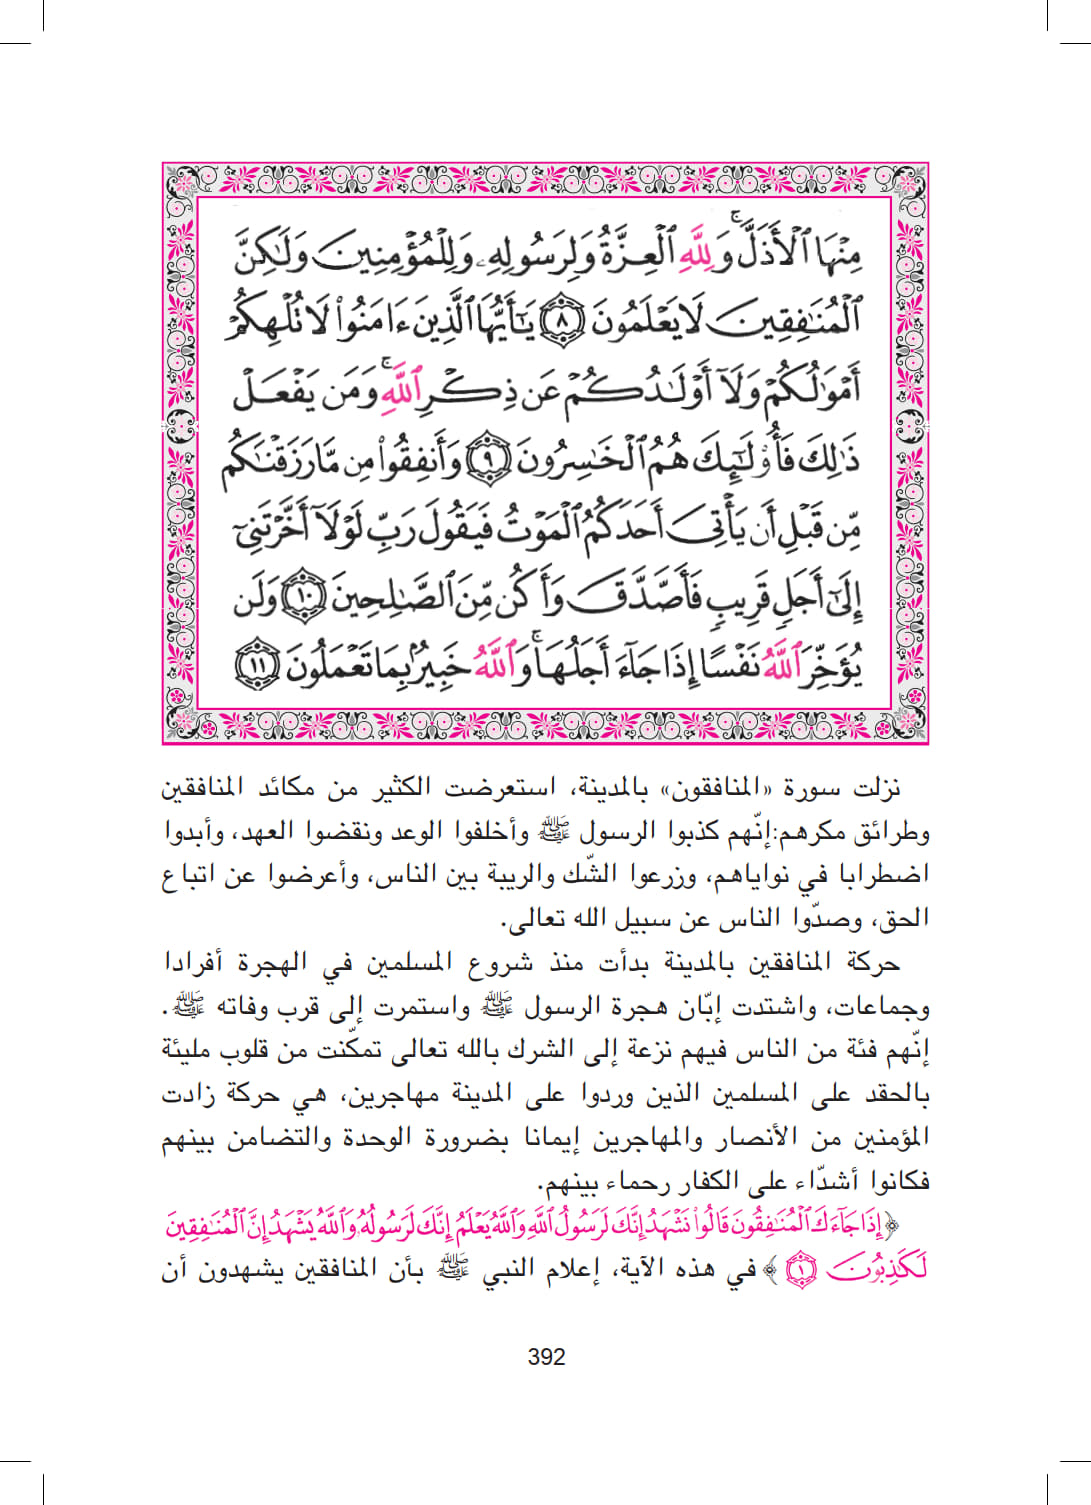 مِنْهَا ٱلْأَذَلَّ ۚ وَلِلَّهِ ٱلْعِزَّةُ وَلِرَسُولِهِۦ وَلِلْمُؤْمِنِينَ وَلَٰكِنَّ
ٱلْمُنَٰفِقِينَ لَا يَعْلَمُونَ ٨ يَٰٓأَيُّهَا ٱلَّذِينَ ءَامَنُوا۟ لَا تُلْهِكُمْ
أَمْوَٰلُكُمْ وَلَآ أَوْلَٰدُكُمْ عَن ذِكْرِ ٱللَّهِ ۚ وَمَن يَفْعَلْ
ذَٰلِكَ فَأُو۟لَٰٓئِكَ هُمُ ٱلْخَٰسِرُونَ ٩ وَأَنفِقُوا۟ مِن مَّا رَزَقْنَٰكُم
مِّن قَبْلِ أَن يَأْتِىَ أَحَدَكُمُ ٱلْمَوْتُ فَيَقُولَ رَبِّ لَوْلَآ أَخَّرْتَنِىٓ
إِلَىٰٓ أَجَلٍ قَرِيبٍ فَأَصَّدَّقَ وَأَكُن مِّنَ ٱلصَّٰلِحِينَ ١٠ وَلَن
يُؤَخِّرَ ٱللَّهُ نَفْسًا إِذَا جَآءَ أَجَلُهَا ۚ وَٱللَّهُ خَبِيرٌۢ بِمَا تَعْمَلُونَ ١١
نزلت سورة «المنافقون» بالمدينة، استعرضت الكثير من مكائد المنافقين
وطرائق مكرهم:إنّهم كذبوا الرسول ﷺ وأخلفوا الوعد ونقضوا العهد، وأبدوا
اضطرابا في نواياهم، وزرعوا الشّك والريبة بين الناس، وأعرضوا عن اتباع
الحق، وصدّوا الناس عن سبيل الله تعالى.
حركة المنافقين بالمدينة بدأت منذ شروع المسلمين في الهجرة أفرادا
وجماعات، واشتدت إبّان هجرة الرسول ﷺ واستمرت إلى قرب وفاته ﷺ.
إنّهم فئة من الناس فيهم نزعة إلى الشرك بالله تعالى تمكّنت من قلوب مليئة
بالحقد على المسلمين الذين وردوا على المدينة مهاجرين، هي حركة زادت
المؤمنين من الأنصار والمهاجرين إيمانا بضرورة الوحدة والتضامن بينهم
فكانوا أشدّاء على الكفار رحماء بينهم.
﴿إِذَا جَآءَكَ ٱلْمُنَٰفِقُونَ قَالُوا۟ نَشْهَدُ إِنَّكَ لَرَسُولُ ٱللَّهِ وَٱللَّهُ يَعْلَمُ إِنَّكَ لَرَسُولُهُۥ وَٱللَّهُ يَشْهَدُ إِنَّ ٱلْمُنَٰفِقِينَ
لَكَٰذِبُونَ ١﴾ في هذه الآية، إعلام النبي ﷺ بأن المنافقين يشهدون أن
392